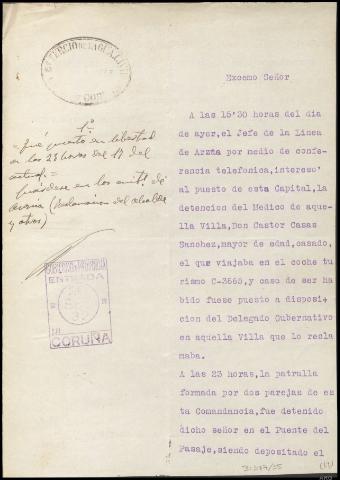 Excemo Señor
A las 15'30 horas del dia
de ayer, el Jefe de la Linea
de Arzúa por medio de confe-
rencia telefonica, interesó
al puesto de esta Capital, la
detencion del Medico de aque-
lla Villa, Don Castor Casas
Sanchez, mayor de edad, casado,
el que viajaba en el coche tu
rismo C-3665, y caso de ser ha
bido fuese puesto a disposi-
cion del Delegado Gubernativo
en aquella Villa que lo recla
maba.
A las 23 horas, la patrulla
formada por dos parejas de es
ta Comandancia, fue detenido
dicho señor en el Puente del
Pasaje, siendo depositado el
1º
= Fué puesto en libertad
en las 23 horas del 17 del
actual. =
de
(Declaracion del alcalde
y otros)
ENTRADA
CORUÑA